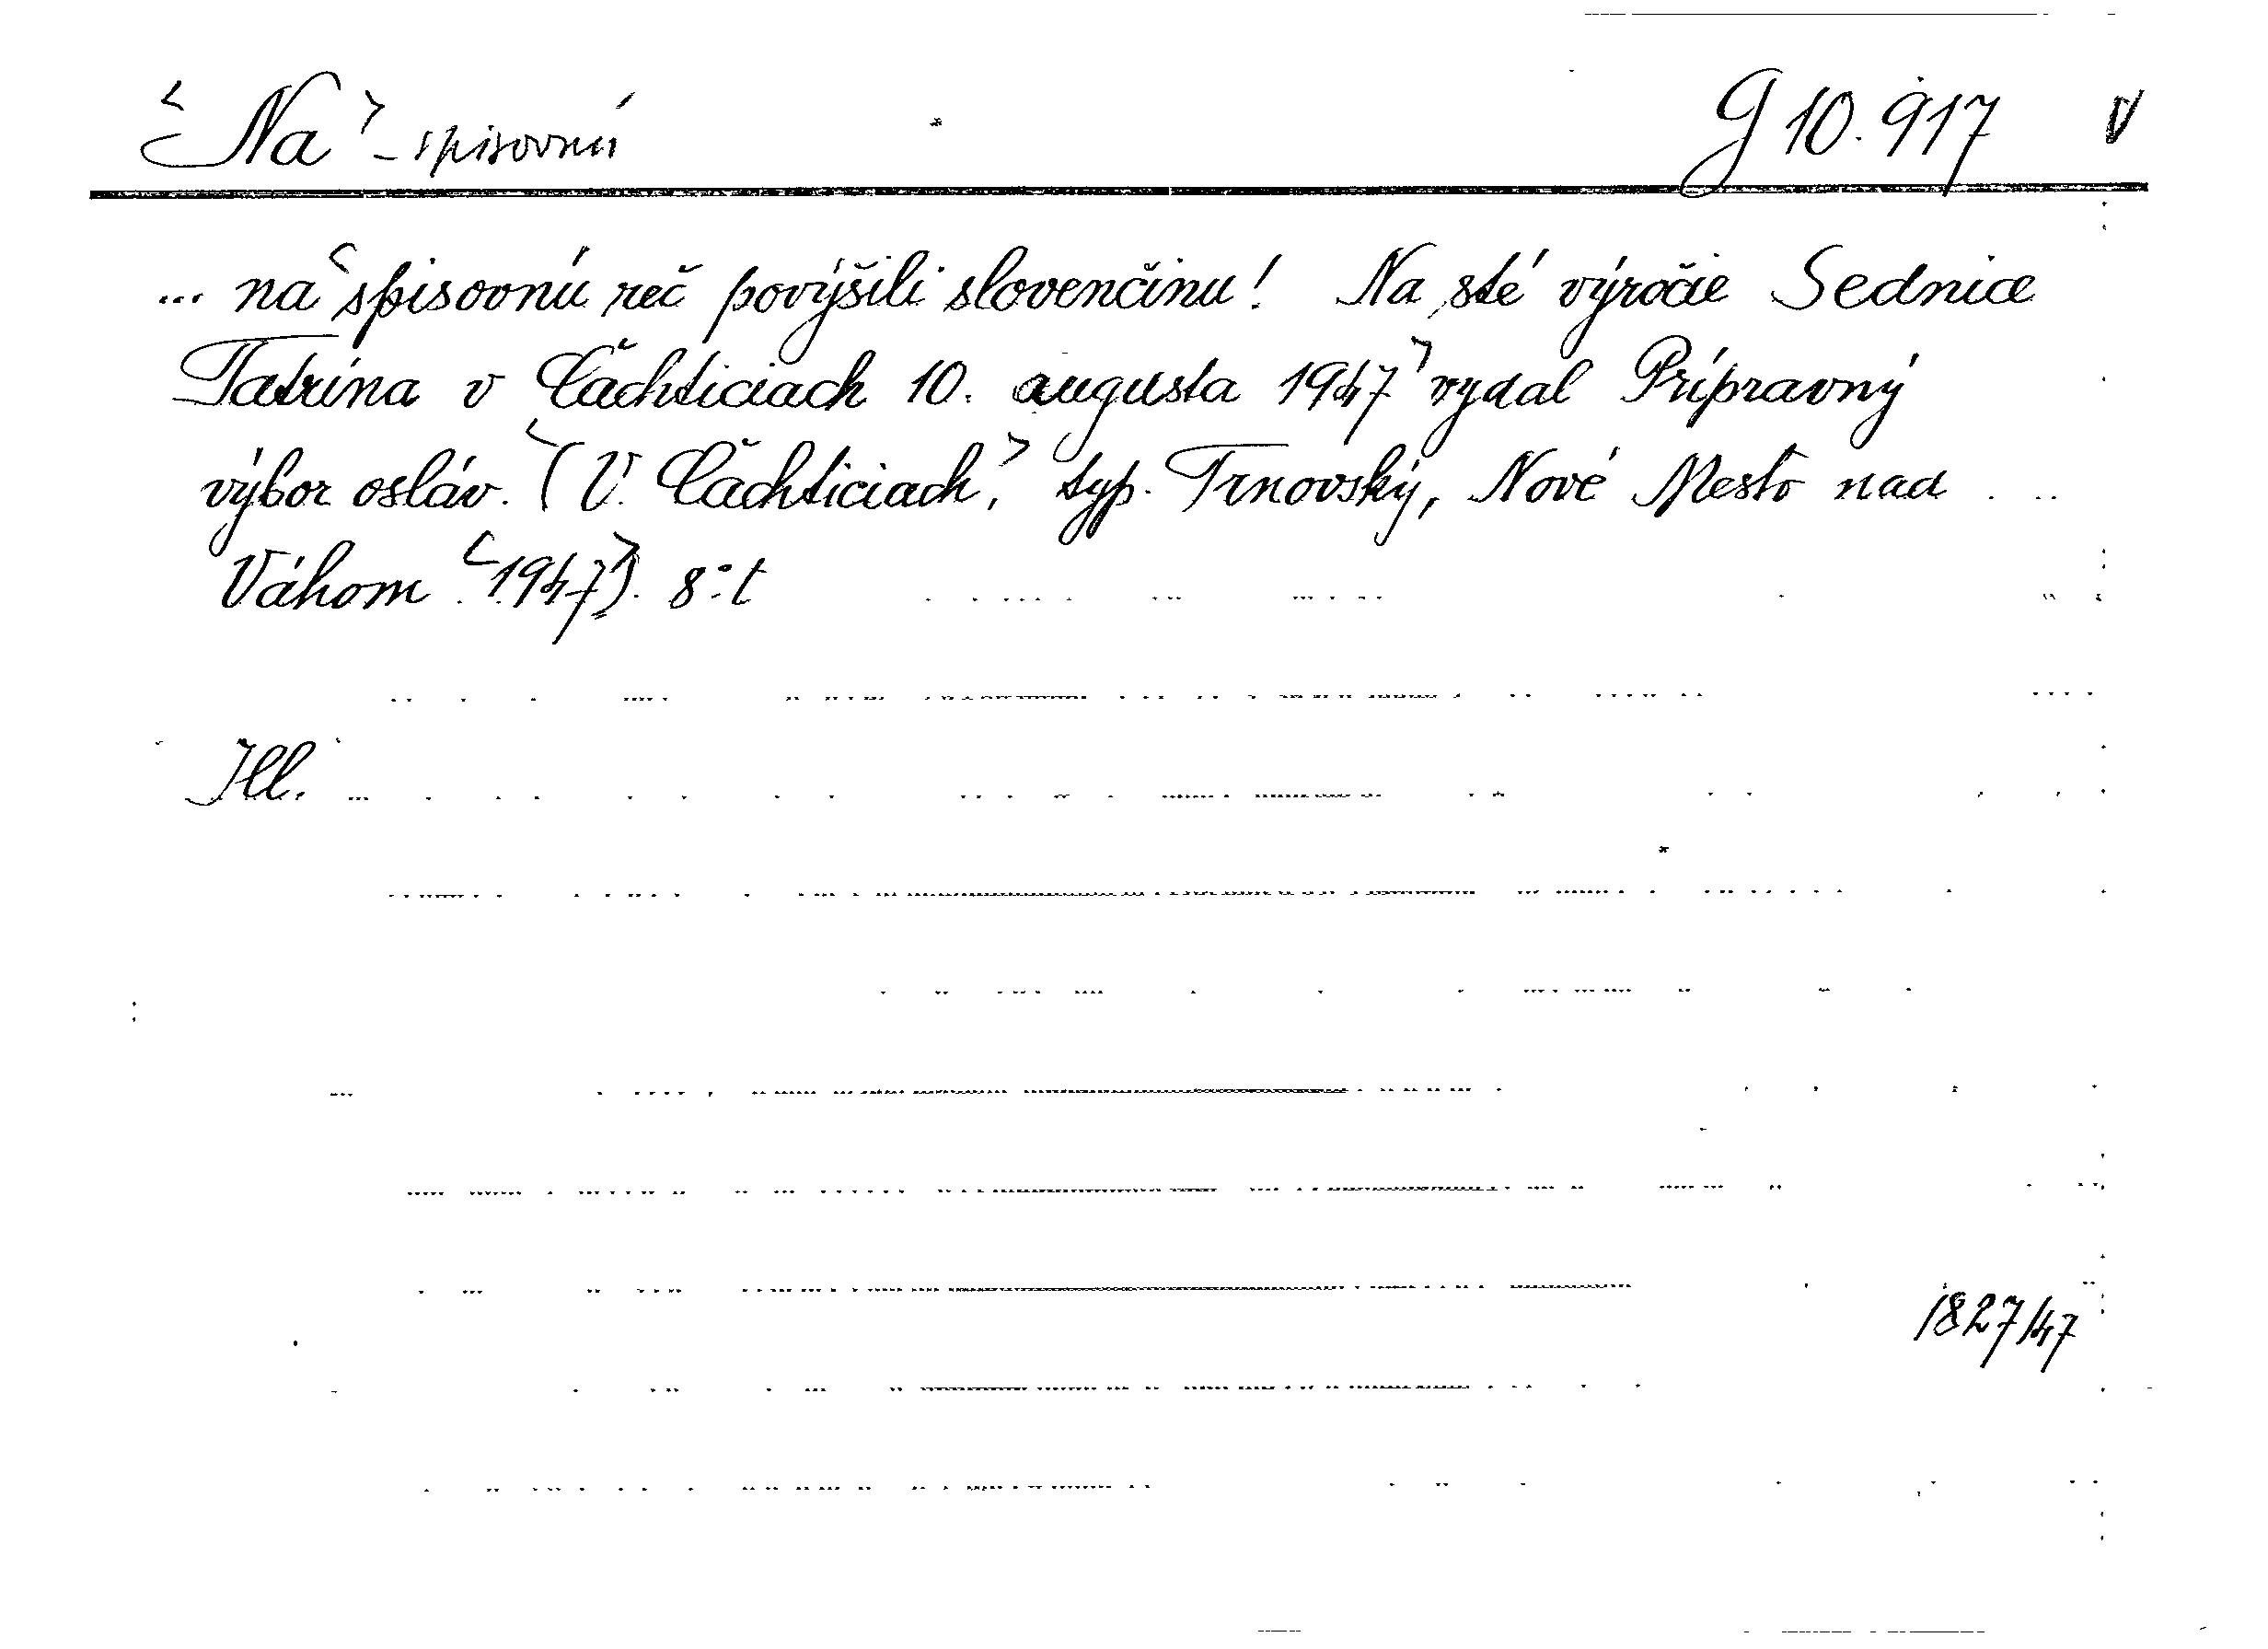 <Na> - spisovnú G 10.917 V
... na <spisovnú reč povýšili slovenčinu! Na sté výročie Sednice
Tatrína v Čachticiach 10. augusta 1947> vydal Prípravný
výbor osláv. <(V Čachticiach,> typ. Trnovský, Nové Mesto nad
Váhom <1947>). 8:t
Ill.
1827/47